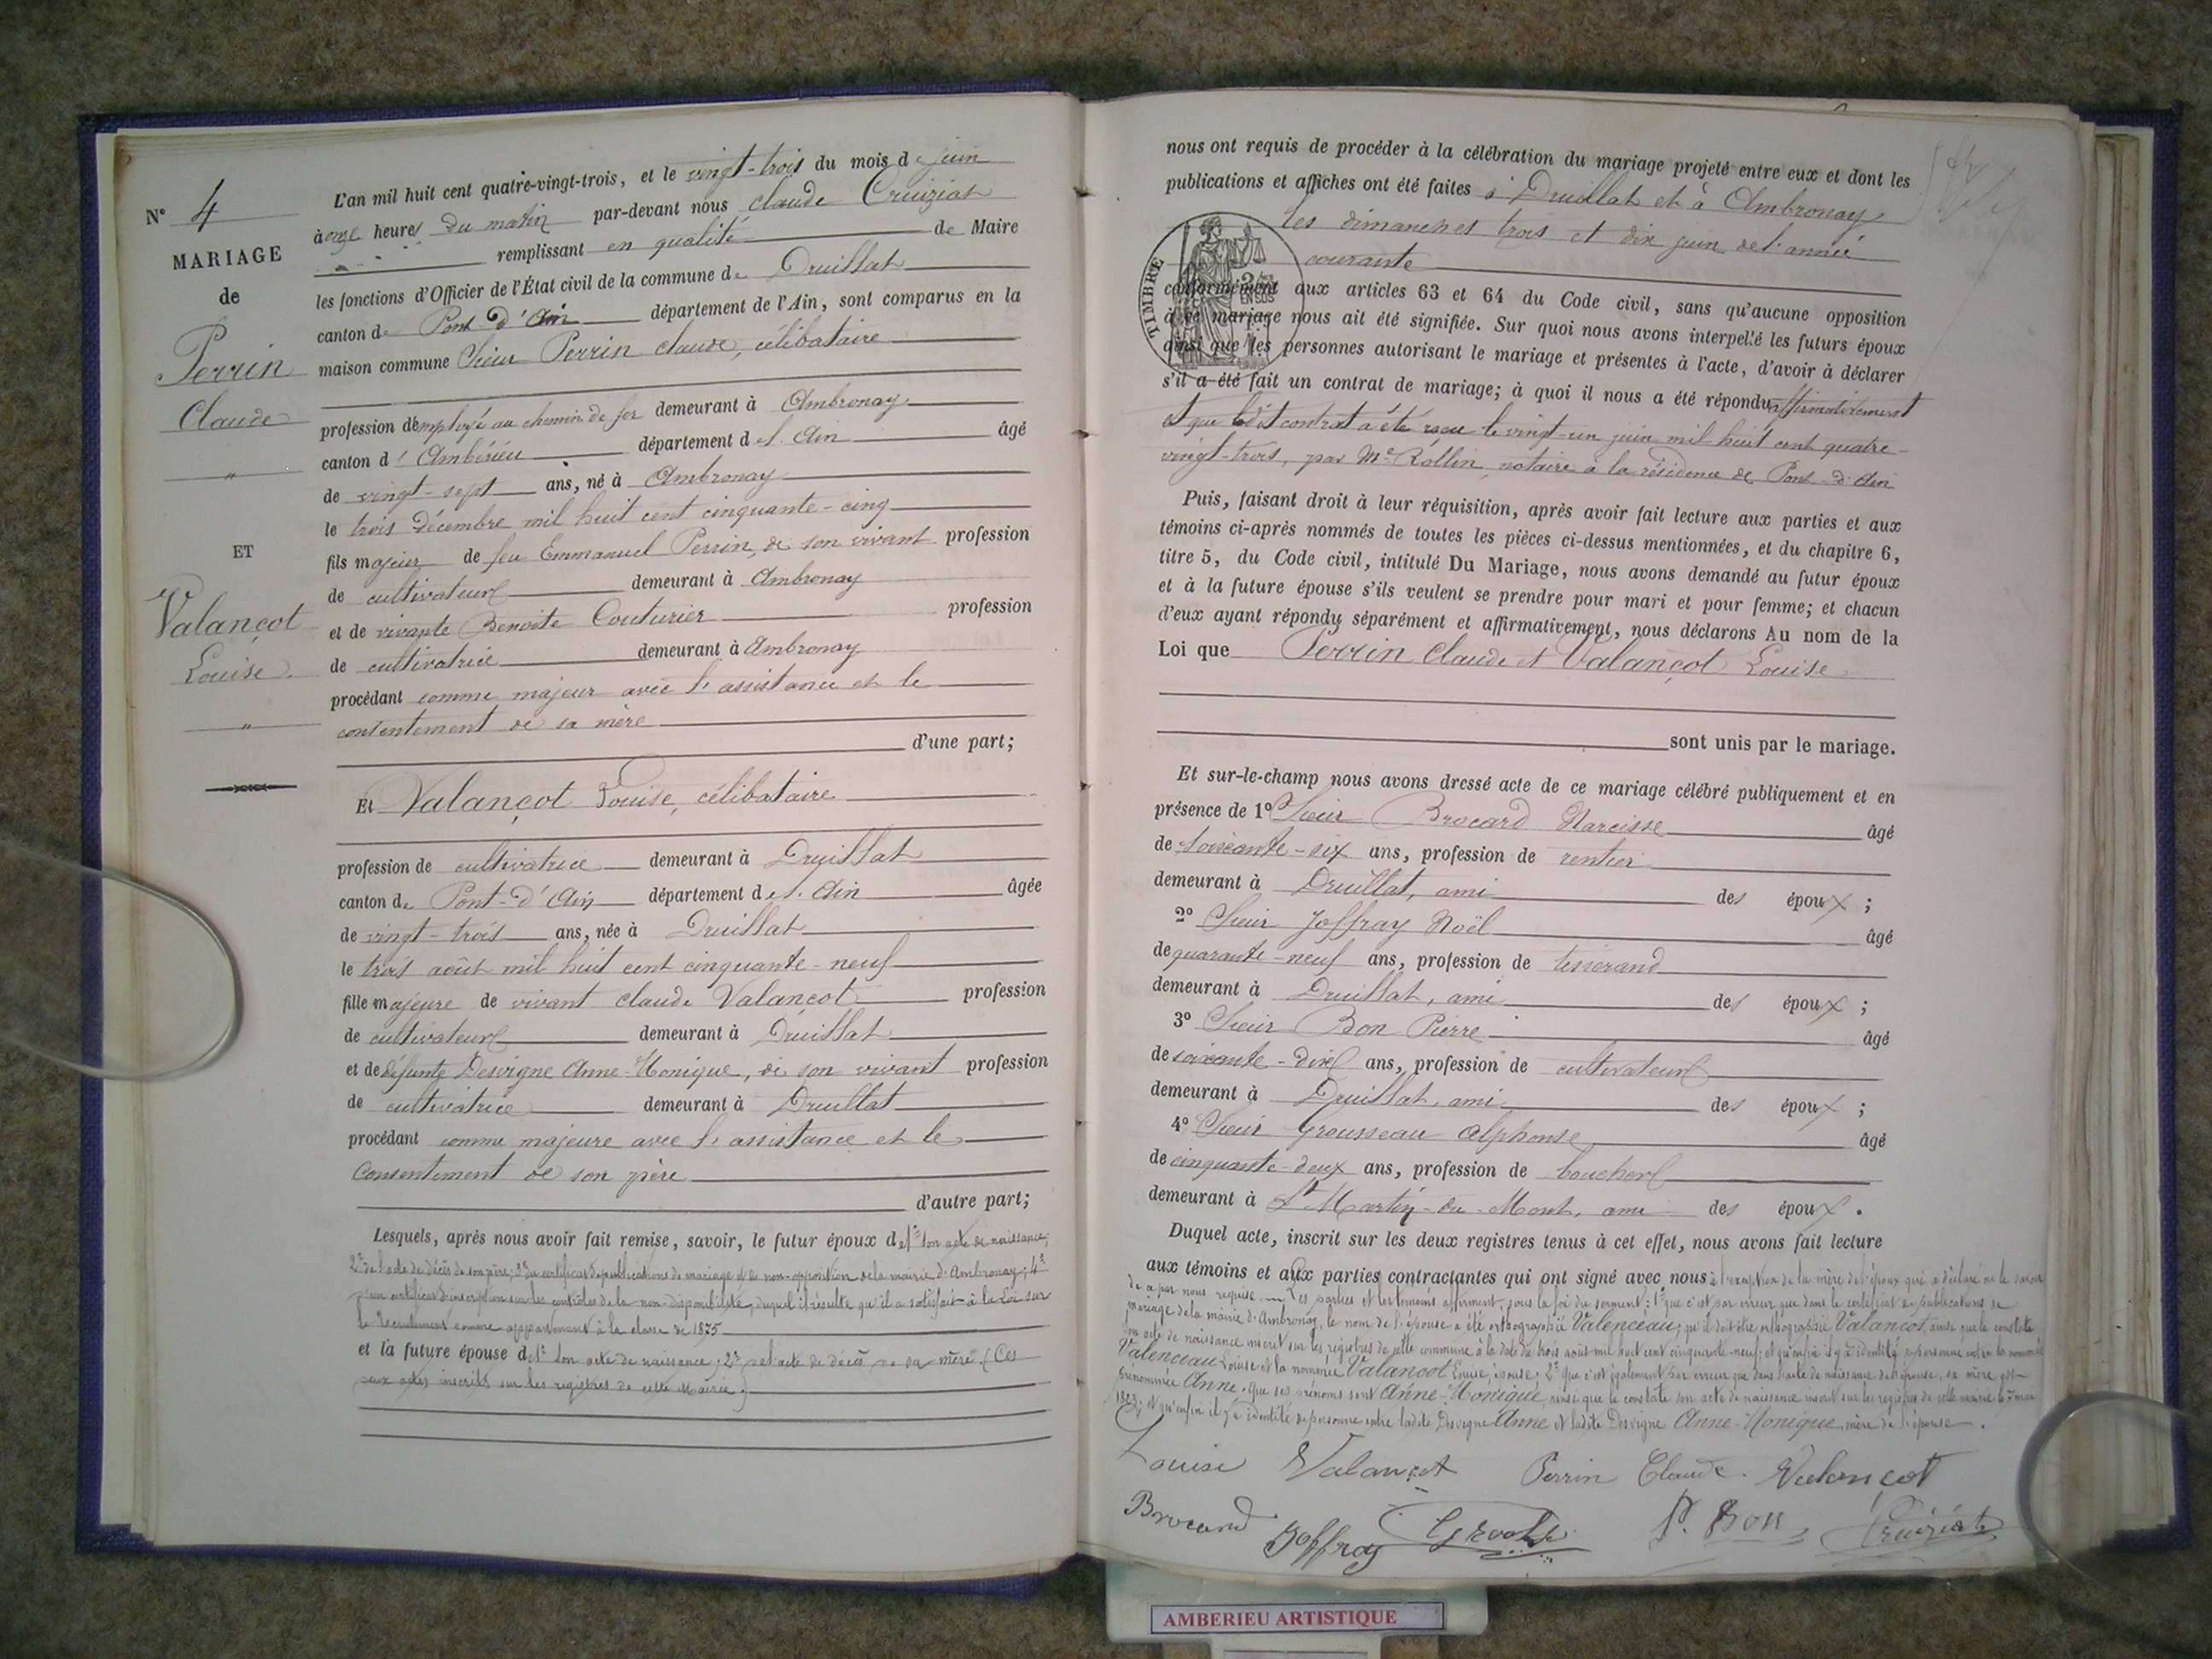 N° 4
MARIAGE
de
Perrin
Claude
"
ET
Valançot
Louise
"
L'an mil huit cent quatre-vingt-trois, et le vingt-trois du mois de juin
à onze heures du matin par-devant nous Claude Cruiziat
remplissant en qualité de Maire
les fonctions d'Officier de l'État civil de la commune de Druillat
canton de Pont-d'Ain département de l'Ain, sont comparus en la
maison commune Sieur Perrin Claude, célibataire
profession d'employé au chemin de fer demeurant à Ambronay
canton d'Ambérieu département de l'Ain âgé
de vingt-sept ans, né à Ambronay
le trois Décembre mil huit cent cinquante-cinq
fils majeur de feu Emmanuel Perrin, de son vivant profession
de cultivateur demeurant à Ambronay
et de vivante Benoite Couturier profession
de cultivatrice demeurant à Ambronay
procédant comme majeur avec l'assistance et le
consentement de sa mère
d'une part;
Et Valançot Louise, célibataire
profession de cultivatrice demeurant à Druillat
canton de Pont-d'Ain département de l'Ain âgée
de vingt-trois ans, née à Druillat
le trois août mil huit cent cinquante-neuf
fille majeure de vivant Claude Valançot profession
de cultivateur demeurant à Druillat
et de défunte Desvigne Anne-Monique, de son vivant profession
de cultivatrice demeurant à Druillat
procédant comme majeure avec l'assistance et le
consentement de son père
d'autre part;
Lesquels, après nous avoir fait remise, savoir, le futur époux de 1° son acte de naissance;
2° de l'acte de décès de son père; 3° du certificat de publications de mariage et de non-opposition de la mairie d'Ambronay; 4°
d'un certificat d'inscription sur les contrôles de la non-disponibilité, duquel il résulte qu'il a satisfait à la Loi sur
le Recrutement comme appartenant à la classe de 1875
et la future épouse de 1° son acte de naissance; 2° de l'acte de décès de sa mère. (Ces
deux actes inscrits sur les registres de cette Mairie.)
nous ont requis de procéder à la célébration du mariage projeté entre eux et dont les
publications et affiches ont été faites à Druillat et à Ambronay
les dimanches trois et dix juin de l'année
courante
TIMBRE
conformément aux articles 63 et 64 du Code civil, sans qu'aucune opposition
à ce mariage nous ait été signifiée. Sur quoi nous avons interpellé les futurs époux
ainsi que les personnes autorisant le mariage et présentes à l'acte, d'avoir à déclarer
s'il a été fait un contrat de mariage; à quoi il nous a été répondu affirmativement
et que ledit contrat a été reçu le vingt-un juin mil huit cent quatre-
vingt-trois, par Me Rollin, notaire à la résidence de Pont-d'Ain
Puis, faisant droit à leur réquisition, après avoir fait lecture aux parties et aux
témoins ci-après nommés de toutes les pièces ci-dessus mentionnées, et du chapitre 6,
titre 5, du Code civil, intitulé Du Mariage, nous avons demandé au futur époux
et à la future épouse s'ils veulent se prendre pour mari et pour femme; et chacun
d'eux ayant répondu séparément et affirmativement, nous déclarons Au nom de la
Loi que Perrin Claude et Valançot Louise
sont unis par le mariage.
Et sur-le-champ nous avons dressé acte de ce mariage célébré publiquement et en
présence de 1° Sieur Brocard Narcisse âgé
de soixante-six ans, profession de rentier
demeurant à Druillat, ami des époux;
2° Sieur Joffray Noël âgé
de quarante-neuf ans, profession de tisserand
demeurant à Druillat, ami des époux;
3° Sieur Bon Pierre âgé
de soixante-dix ans, profession de cultivateur
demeurant à Druillat, ami des époux;
4° Sieur Grousseau Alphonse âgé
de cinquante-deux ans, profession de boucher
demeurant à St Martin-du-Mont, ami des époux.
Duquel acte, inscrit sur les deux registres tenus à cet effet, nous avons fait lecture
aux témoins et aux parties contractantes qui ont signé avec nous à l'exception de la mère de l'époux qui a déclaré ne le savoir
de ce par nous requise. Les parties et les témoins affirment, sous la foi du serment: 1° que c'est par erreur que dans le certificat de publications de
mariage de la mairie d'Ambronay, le nom de l'épouse a été orthographié Valenceau, qu'il doit être orthographié Valançot, ainsi que le constate
son acte de naissance inscrit sur les registres de cette commune à la date du trois août mil huit cent cinquante-neuf; et qu'enfin il y a identité de personne entre la nommée
Valenceau Louise et la nommée Valançot Louise, épouse; 2° que c'est également par erreur que dans l'acte de naissance de l'épouse, sa mère est
prénommée Anne, que ses prénoms sont Anne-Monique, ainsi que le constate son acte de naissance inscrit sur les registres de cette mairie le 7 mai
et qu'enfin il y a identité de personne entre ladite Desvigne Anne et ladite Desvigne Anne-Monique, mère de l'épouse.
Louise Valançot Perrin Claude. Valançot
Brocard Joffray P. Bon Cruiziat
AMBERIEU ARTISTIQUE